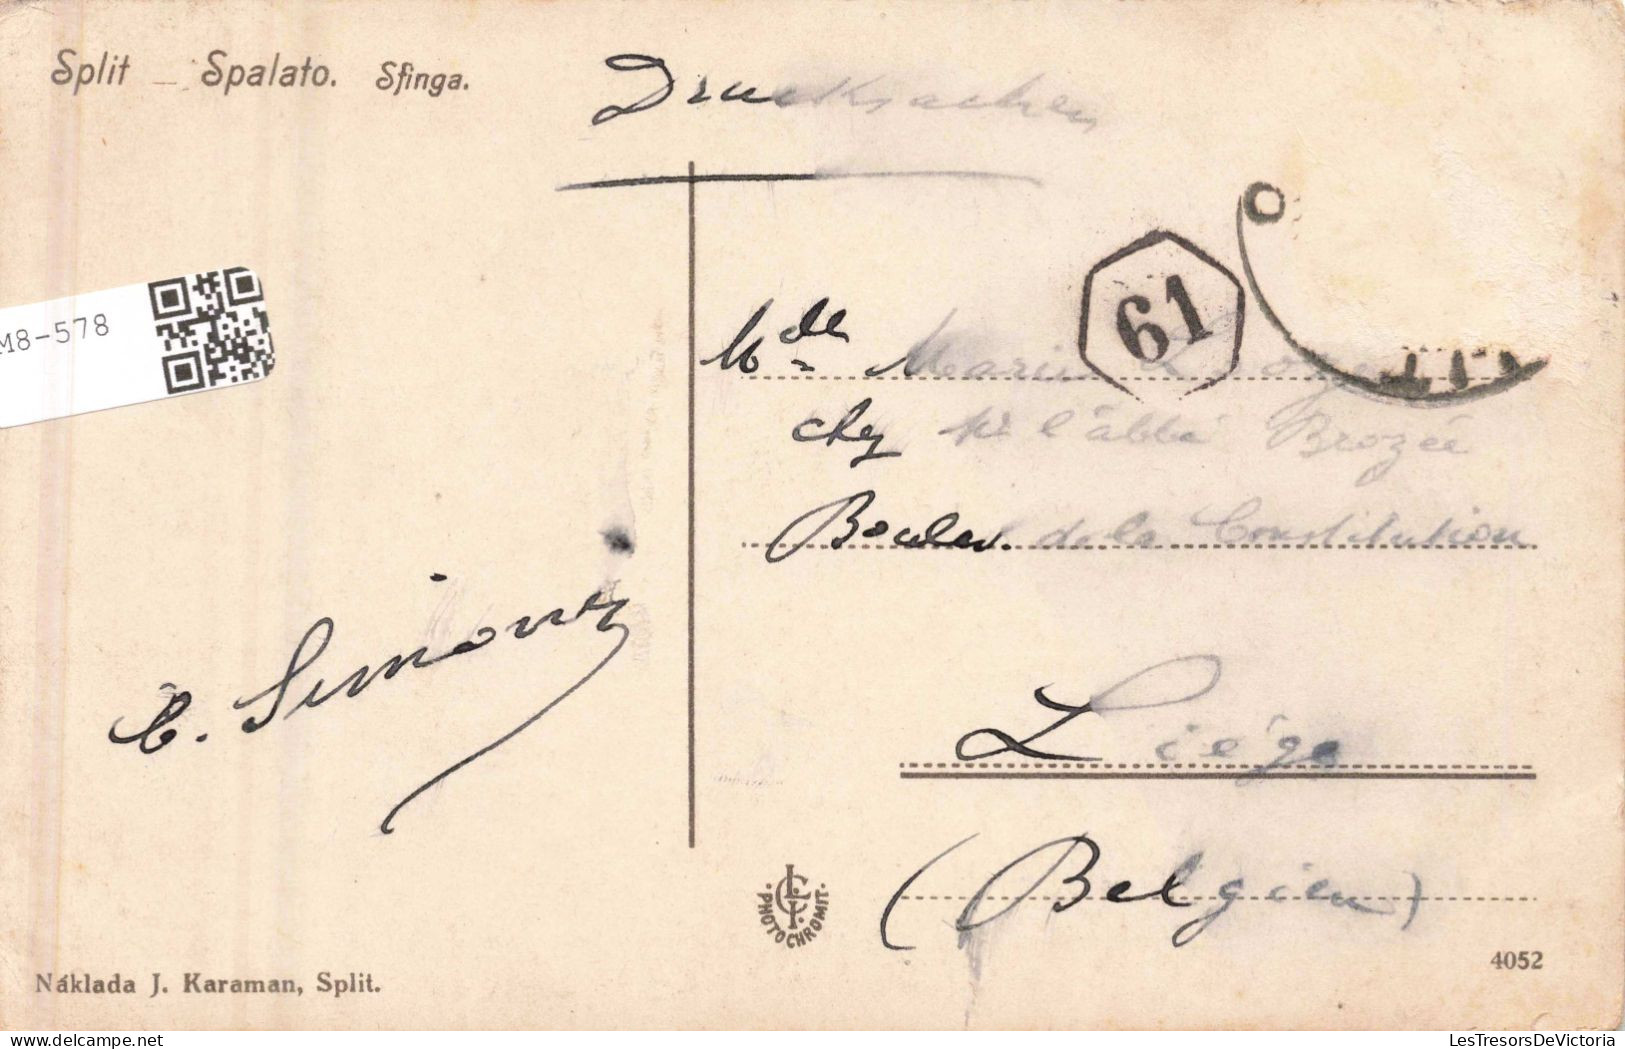 Split — Spalato. Sfinga.
Drucksachen
61
M8-578
Mdelle Marie
chez Mr l'abbé Brozée
Boulev. de la Constitution
Liége
(Belgien)
PHOTOCHROMIT.
4052
Náklada J. Karaman, Split.
LesTresorsDeVictoria